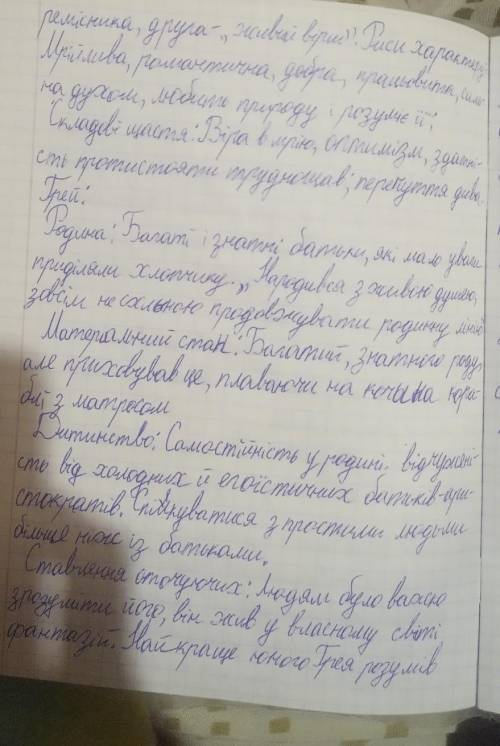 ремісника, друга - „живий вірш". Риси характеру:
Мрійлива, романтична, добра, працьовита, сильна
на духом, любить природу і розуміє її;
Складові щастя: Віра в мрію, оптимізм, здатні-
сть протистояти труднощав; перекуття дива.
Грей:
Родина: Багаті і знатні батьки, які мало уваги
приділяли хлопчику. „Народився з живою душею,
зовсім не схильною продовжувати родинну лінію
Матеріальний стан: Багатий, знатного роду
але приховував це, плаваючи на кораблі
блі з матросом
Дитинство: Самостійність у родині, відчужені-
сть від холодних й егоїстичних батьків-ари-
стократів. Спілкуватися з простими людьми
більше ніж із батьками.
Ставлення оточуючих: Людям було важко
зрозуміти його, він жив у власному світі
фантазій. Найкраще юного Грея розумів